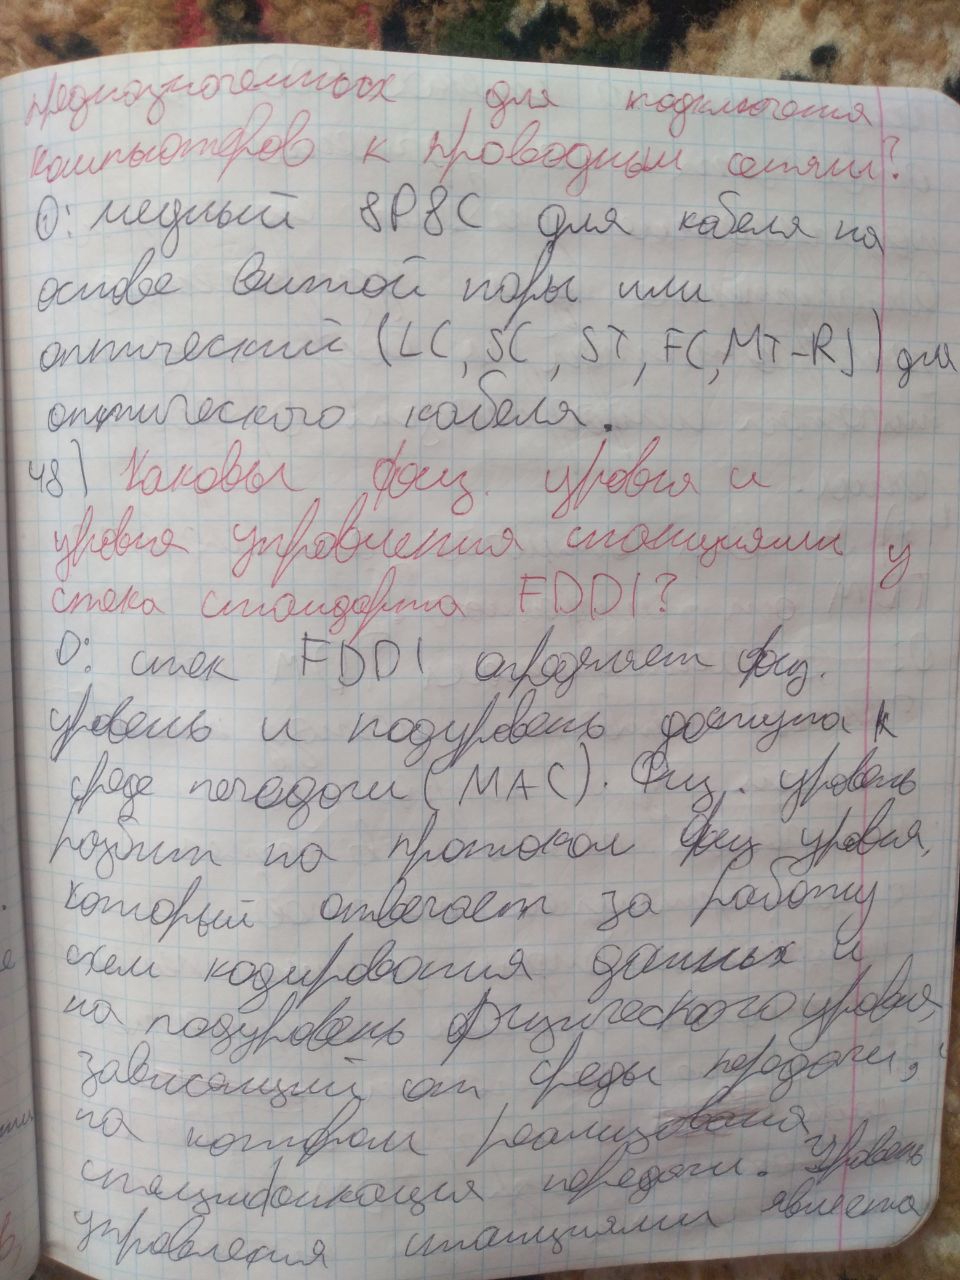 предназначенных для подключения
компьютеров к проводным сетям?
О: медный 8P8C для кабеля на
основе витой пары или
оптический (LC, SC, ST, FC, MT-RJ) для
оптического кабеля.
48) Каковы физ. уровня и
уровня управления станциями у
стека стандарта FDDI?
О: стек FDDI определяет физ.
уровень и подуровень доступа к
среде печадачи (MAC). Физ. уровень
разбит на протокол физ уровня,
который отвечает за работу
схем кодирования данных и
на подуровень физического уровня,
зависящий от среды передачи,
на котором реализована
спецификация передачи. Уровень
управления станциями является